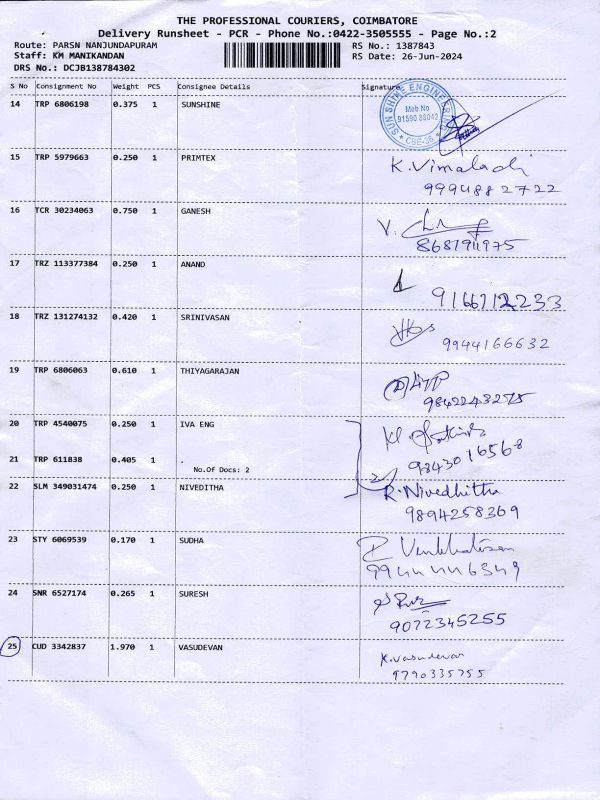 THE PROFESSIONAL COURIERS, COIMBATORE
Delivery Runsheet - PCR - Phone No.:0422-3505555 - Page No.:2
Route: PARSN NANJUNDAPURAM
Staff: KM MANIKANDAN
DRS No.: DCJB138784302
RS No.: 1387843
RS Date: 26-Jun-2024
S No Consignment No Weight PCS Consignee Details Signature
14 TRP 6806198 0.375 1 SUNSHINE
SUN SHINE ENGINEERING
Mob No
91590 88042
* CBE-36 *
15 TRP 5979663 0.250 1 PRIMTEX K. Vimaladi
9994882722
16 TCR 30234063 0.750 1 GANESH V.
8681911975
17 TRZ 113377384 0.250 1 ANAND
9166712233
18 TRZ 131274132 0.420 1 SRINIVASAN
9944166632
19 TRP 6806063 0.610 1 THIYAGARAJAN
9842243275
20 TRP 4540075 0.250 1 IVA ENG
9843016568
21 TRP 611838 0.405 1
No.Of Docs: 2
2
22 SLM 349031474 0.250 1 NIVEDITHA R. Nivedhitha
9894258369
23 STY 6069539 0.170 1 SUDHA
9944446349
24 SNR 6527174 0.265 1 SURESH
9072345255
25 CUD 3342837 1.970 1 VASUDEVAN K. Vasudevan
9790335755